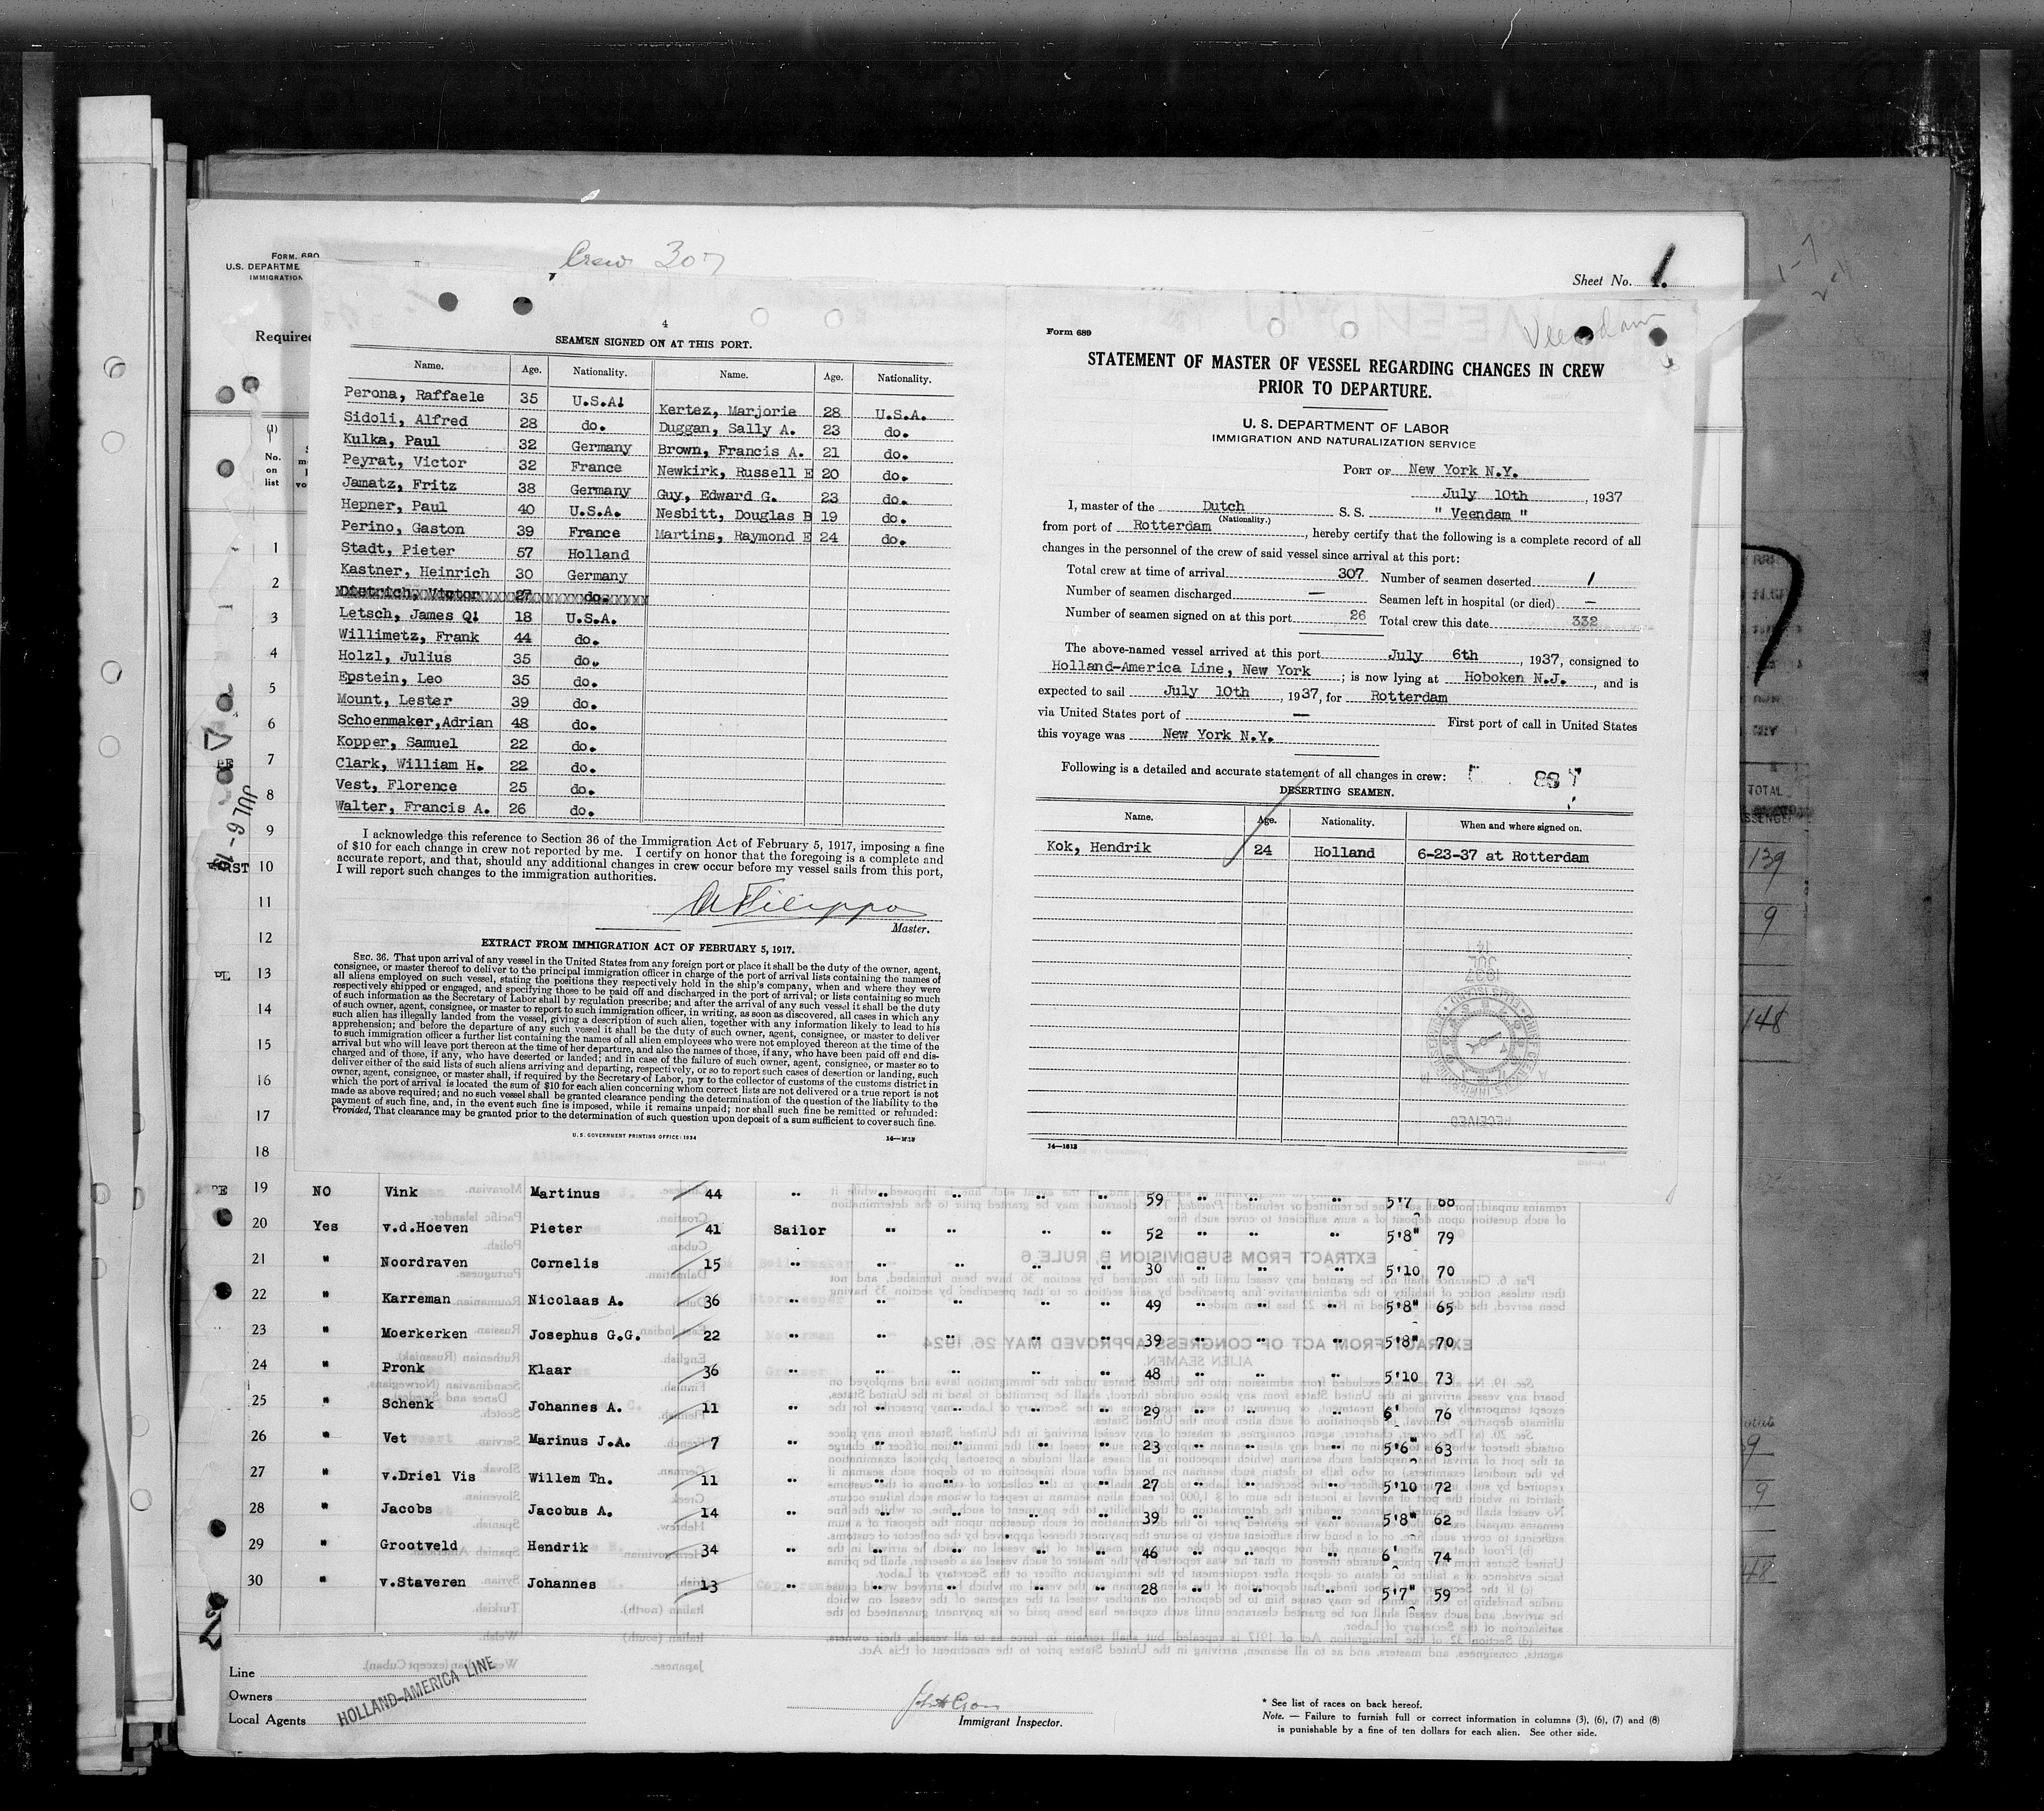 Form 680
U.S. DEPARTME
IMMIGRATION
Crew 307
Sheet No. 1.
Required
4
SEAMEN SIGNED ON AT THIS PORT.
Name. Age. Nationality. Name. Age. Nationality.
Perona, Raffaele 35 U.S.A. Kertez, Marjorie 28 U.S.A.
Sidoli, Alfred 28 do. Duggan, Sally A. 23 do.
Kulka, Paul 32 Germany Brown, Francis A. 21 do.
Peyrat, Victor 32 France Newkirk, Russell E 20 do.
Jamatz, Fritz 38 Germany Guy, Edward G. 23 do.
Hepner, Paul 40 U.S.A. Nesbitt, Douglas B 19 do.
Perino, Gaston 39 France Martins, Raymond E 24 do.
Stadt, Pieter 57 Holland
Kastner, Heinrich 30 Germany
Districh, Victor 27 do.
Letsch, James Q. 18 U.S.A.
Willimetz, Frank 44 do.
Holzl, Julius 35 do.
Epstein, Leo 35 do.
Mount, Lester 39 do.
Schoenmaker,Adrian 48 do.
Kopper, Samuel 22 do.
Clark, William H. 22 do.
Vest, Florence 25 do.
Walter, Francis A. 26 do.
I acknowledge this reference to Section 36 of the Immigration Act of February 5, 1917, imposing a fine
of $10 for each change in crew not reported by me. I certify on honor that the foregoing is a complete and
accurate report, and that, should any additional changes in crew occur before my vessel sails from this port,
I will report such changes to the immigration authorities.
Master.
EXTRACT FROM IMMIGRATION ACT OF FEBRUARY 5, 1917.
SEC. 36. That upon arrival of any vessel in the United States from any foreign port or place it shall be the duty of the owner, agent,
consignee, or master thereof to deliver to the principal immigration officer in charge of the port of arrival lists containing the names of
all aliens employed on such vessel, stating the positions they respectively hold in the ship's company, when and where they were
respectively shipped or engaged, and specifying those to be paid off and discharged in the port of arrival; or lists containing so much
of such information as the Secretary of Labor shall by regulation prescribe; and after the arrival of any such vessel it shall be the duty
of such owner, agent, consignee, or master to report to such immigration officer, in writing, as soon as discovered, all cases in which any
such alien has illegally landed from the vessel, giving a description of such alien, together with any information likely to lead to his
apprehension; and before the departure of any such vessel it shall be the duty of such owner, agent, consignee, or master to deliver
to such immigration officer a further list containing the names of all alien employees who were not employed thereon at the time of the
arrival but who will leave port thereon at the time of her departure, and also the names of those, if any, who have been paid off and dis-
charged and of those, if any, who have deserted or landed; and in case of the failure of such owner, agent, consignee, or master so to
deliver either of the said lists of such aliens arriving and departing, respectively, or so to report such cases of desertion or landing, such
owner, agent, consignee, or master shall, if required by the Secretary of Labor, pay to the collector of customs of the customs district in
which the port of arrival is located the sum of $10 for each alien concerning whom correct lists are not delivered or a true report is not
made as above required; and no such vessel shall be granted clearance pending the determination of the question of the liability to the
payment of such fine, and, in the event such fine is imposed, while it remains unpaid; nor shall such fine be remitted or refunded:
Provided, That clearance may be granted prior to the determination of such question upon deposit of a sum sufficient to cover such fine.
U. S. GOVERNMENT PRINTING OFFICE: 1934 14—1613
Form 689
Veendam
STATEMENT OF MASTER OF VESSEL REGARDING CHANGES IN CREW
PRIOR TO DEPARTURE.
U. S. DEPARTMENT OF LABOR
IMMIGRATION AND NATURALIZATION SERVICE
PORT OF New York N.Y.
July 10th, 1937
I, master of the Dutch S. S. " Veendam "
(Nationality.)
from port of Rotterdam, hereby certify that the following is a complete record of all
changes in the personnel of the crew of said vessel since arrival at this port:
Total crew at time of arrival 307 Number of seamen deserted 1
Number of seamen discharged — Seamen left in hospital (or died) —
Number of seamen signed on at this port 26 Total crew this date 332
The above-named vessel arrived at this port July 6th, 1937, consigned to
Holland-America Line, New York; is now lying at Hoboken N.J., and is
expected to sail July 10th, 1937, for Rotterdam
via United States port of — First port of call in United States
this voyage was New York N.Y.
Following is a detailed and accurate statement of all changes in crew:
DESERTING SEAMEN.
Name. Age. Nationality. When and where signed on.
Kok, Hendrik 24 Holland 6-23-37 at Rotterdam
14—1613
(1)
No.
on
list
1
2
3
4
5
6
7
8
9
10
11
12
13
14
15
16
17
18
19 NO Vink Martinus 44 " " " " " 59 " " " 5'7 68
20 Yes v.d.Hoeven Pieter 41 Sailor " " " " 52 " " " 5'8" 79
21 " Noordraven Cornelis 15 " " " " " 30 " " " 5'10 70
22 " Karreman Nicolaas A. 36 " " " " " 49 " " " 5'8" 65
23 " Moerkerken Josephus G.G. 22 " " " " " 39 " " " 5'8" 70
24 " Pronk Klaar 36 " " " " " 48 " " " 5'10 73
25 " Schenk Johannes A. 11 " " " " " 29 " " " 6' 76
26 " Vet Marinus J.A. 7 " " " " " 23 " " " 5'6" 63
27 " v.Driel Vis Willem Th. 11 " " " " " 27 " " " 5'10 72
28 " Jacobs Jacobus A. 14 " " " " " 39 " " " 5'8" 62
29 " Grootveld Hendrik 34 " " " " " 46 " " " 6' 74
30 " v.Staveren Johannes 13 " " " " " 28 " " " 5'7" 59
Line
Owners
Local Agents
HOLLAND-AMERICA LINE
Immigrant Inspector.
* See list of races on back hereof.
Note. — Failure to furnish full or correct information in columns (3), (6), (7) and (8)
is punishable by a fine of ten dollars for each alien. See other side.
TOTAL
139
9
148